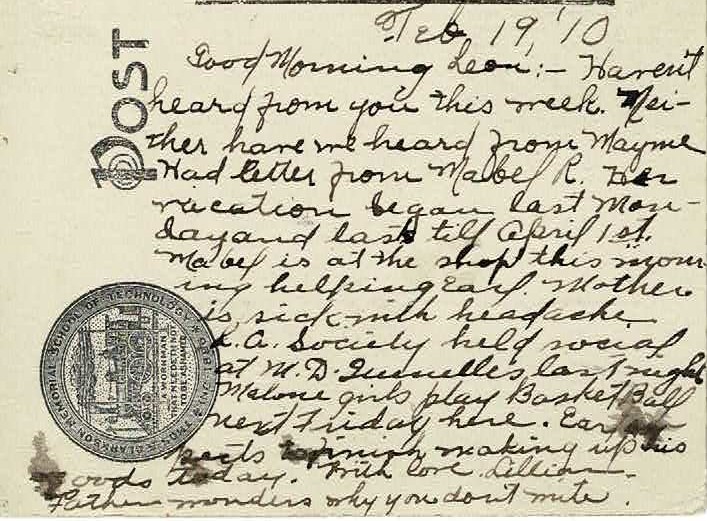 Feb 19, '10
POST
Good Morning Leon:- Haven't
heard from you this week. Nei-
ther have we heard from Mayme
Had letter from Mabel R. Her
vacation began last Mon-
day and lasts till April 1st.
Mabel is at the shop this morn-
ing helping Earl. Mother
is sick with headache
L.A. Society held social
at M. D. last night
Malone girls play Basket Ball
next Friday here. Earl ex
pects to finish making up his
goods today. With love Lillian.
Father wonders why you don't write.
CLARKSON MEMORIAL SCHOOL OF TECHNOLOGY
A WORKMAN
THAT NEEDETH NOT
TO BE ASHAMED